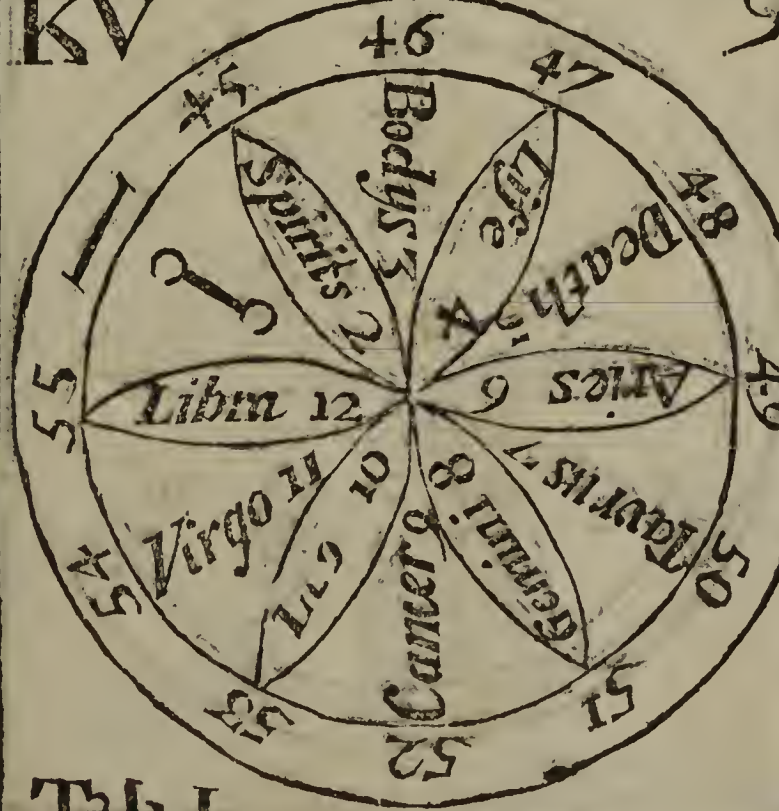 45
46
47
48
49
50
51
52
53
54
55
Spirits 2
Bodys 3
Lyfe 4
Death 5
Aries 6
Taurus 7
Gemini 8
Camer 9
10
Virgo 11
Libra 12